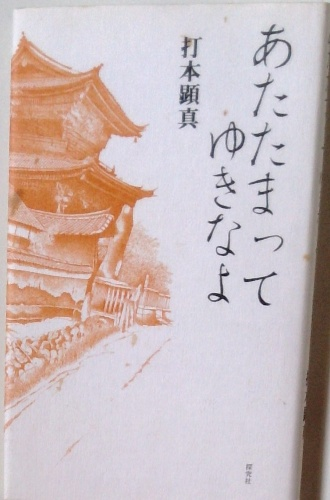 あたたまって
ゆきなよ
打本顕真
探究社